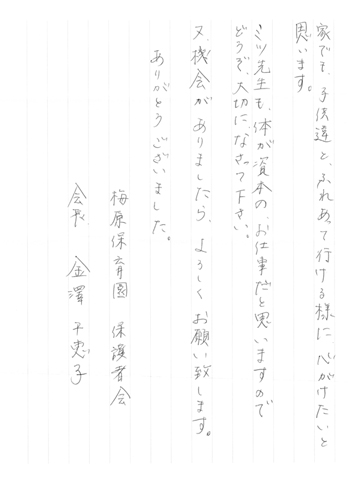 家でも、子供達と、ふれあって行ける様に、心がけたいと
思います。
ミツ先生も、体が資本の、お仕事だと思いますので
どうぞ、大切になさって下さい。
又、機会がありましたら、よろしくお願い致します。
ありがとうございました。
梅原保育園 保護者会
会長 金澤 千恵子